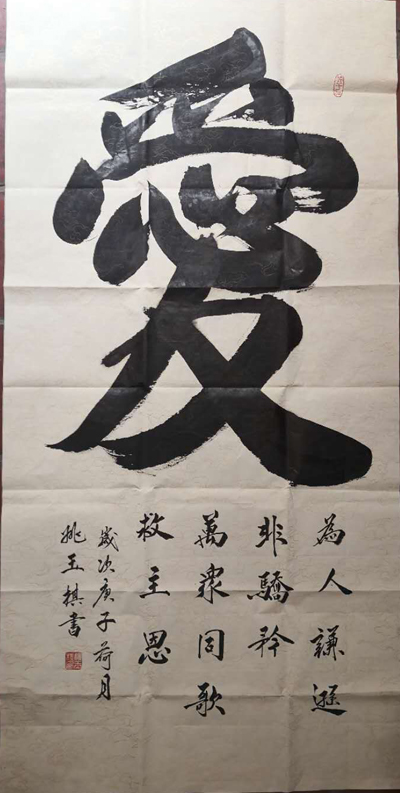 愛
為人謙遜
非驕矜
萬眾同歌
救主恩
歲次庚子荷月
姚玉棋書